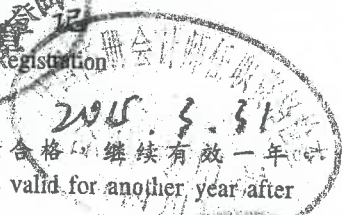 登记
egistration
册会计师任职资格
2015.3.31
合格，继续有效一年
valid for another year after